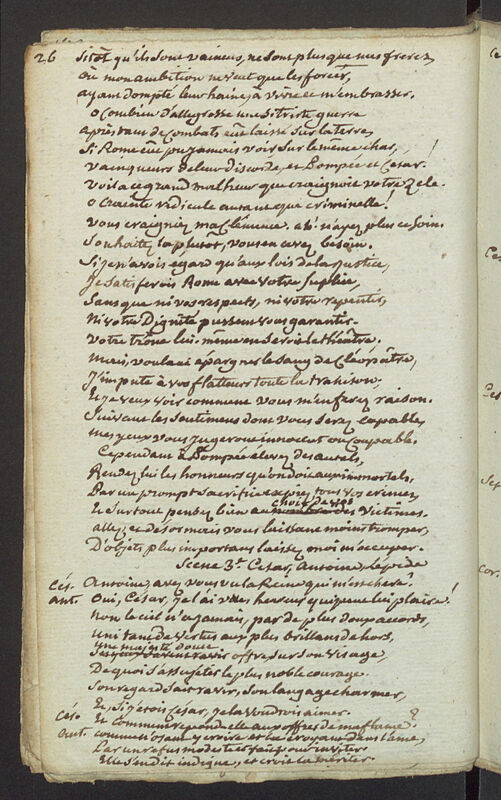 26 Sitôt qu'ils sont vaincus, ne sont plus que mes freres,
Où mon ambition ne veut que les forcer,
ayant dompté leur haine, à vivre et m'embrasser.
O combien d'allegresse une si triste guerre
après tant de combats eût laissé sur la terre,
Si Rome eût pu jamais voir sur le même char,
vainqueurs de leur discorde, et Pompée et César !
voilà ce grand malheur que craignoit votre zele.
O Crainte ridicule autant que criminelle !
vous craigniez ma clémence. ah ! n'ayez plus ce soin.
Souhaitez la plutot, vous en avez besoin.
Si je n'avois egard qu'aux lois de la justice,
Je satisferois Rome avec votre suplice,
Sans que ni vos respects, ni votre repentir,
Ni votre Dignité pussent vous garantir.
votre trône lui-même en seroit le théâtre.
Mais, voulant épargner le sang de Cléopâtre,
J'impute à vos flatteurs toute la trahison,
Et je veux voir comment vous m'en ferez raison.
Suivant les sentimens dont vous serez capables
mes yeux vous jugeront innocent ou coupable.
Cependant à Pompée élevez des autels,
Rendez lui les honneurs qu'on doit aux immortels,
Par un prompt sacrifice expiez tous vos crimes,
choix de vos
Et surtout pensez bien au nombre des victimes.
allez, et désormais vous laissant moins tromper,
D'objets plus importans laissez moi m'occuper.
Scene 3e. César, Antoine, Lepide
Cés. Antoine, avez vous vu la Reine qui m'est chere ?
Ant. Oui, César, je l'ai vue : heureux qui peut lui plaire !
Non le ciel n'a jamais, par de plus doux accords,
uni tant de vertus aux plus brillans dehors,
une majesté douce
offre sur son visage
De quoi s'assujetir le plus noble courage
Son regard sait ravir, son langage charmer,
Et, si j'étois César, je la voudrois aimer.
Cés. Et comment répond-elle aux offres de ma flame ?
Ant. comme n'osant y croire et la croyant dans l'ame,
Par un refus modeste et fait pour inviter
Elle s'en dit indigne, et croit la mériter.